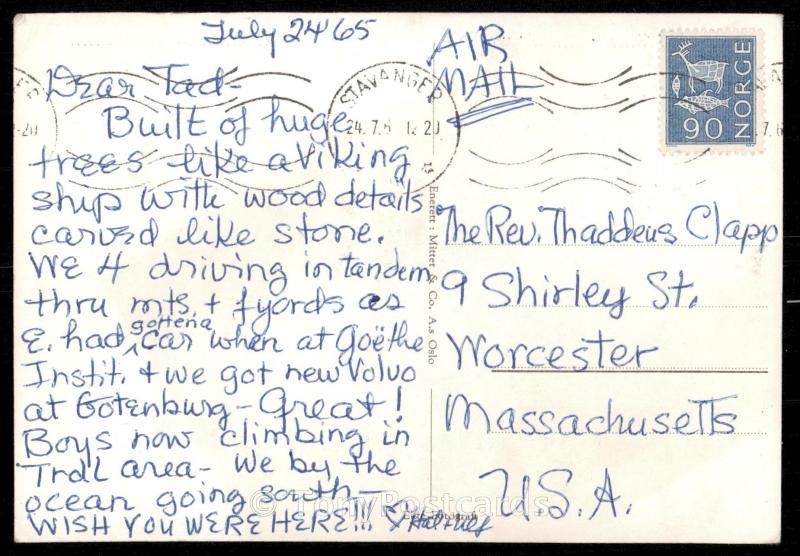 July 24 65
Dear Tad-
Built of huge
trees like a Viking
ship with wood details
carved like stone.
WE 4 driving in tandem
thru mts. + fyords as
E. had gotten a car when at Goëthe
Instit. + we got new Volvo
at Gotenburg - Great!
Boys now climbing in
area - We by the
ocean going south -
WISH YOU WERE HERE!!!
AIR
MAIL
STAVANGER
24.7.6 12 20
NORGE
90
13
Enerett: Mittet & Co. A.s Oslo
The Rev. Thaddeus Clapp
9 Shirley St.
Worcester
Massachusetts
U.S.A.
© TonyPostcards